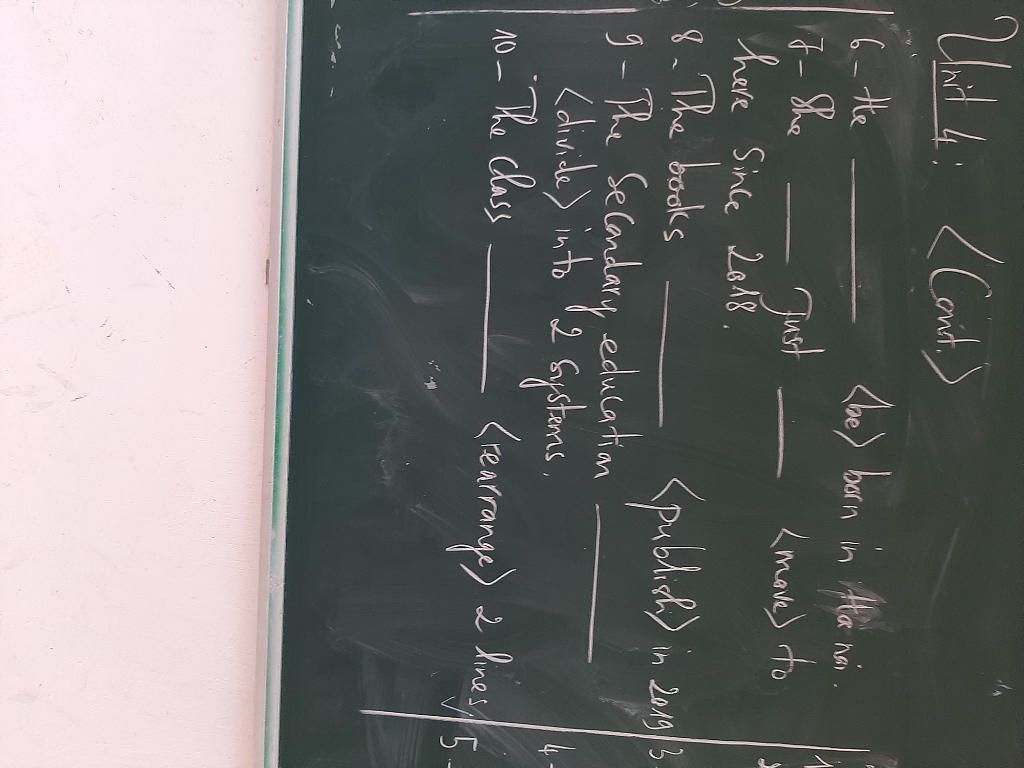 Unit 4: <Cont.>
6- He ______ <be> born in Ha noi.
7- She ____ Just ____ <move> to
here Since 2018.
8- The books ______ <publish> in 2019
9- The Secondary education ______
<divide> into 2 Systems.
10- The Class ______ <rearrange> 2 lines
3
4-
5-